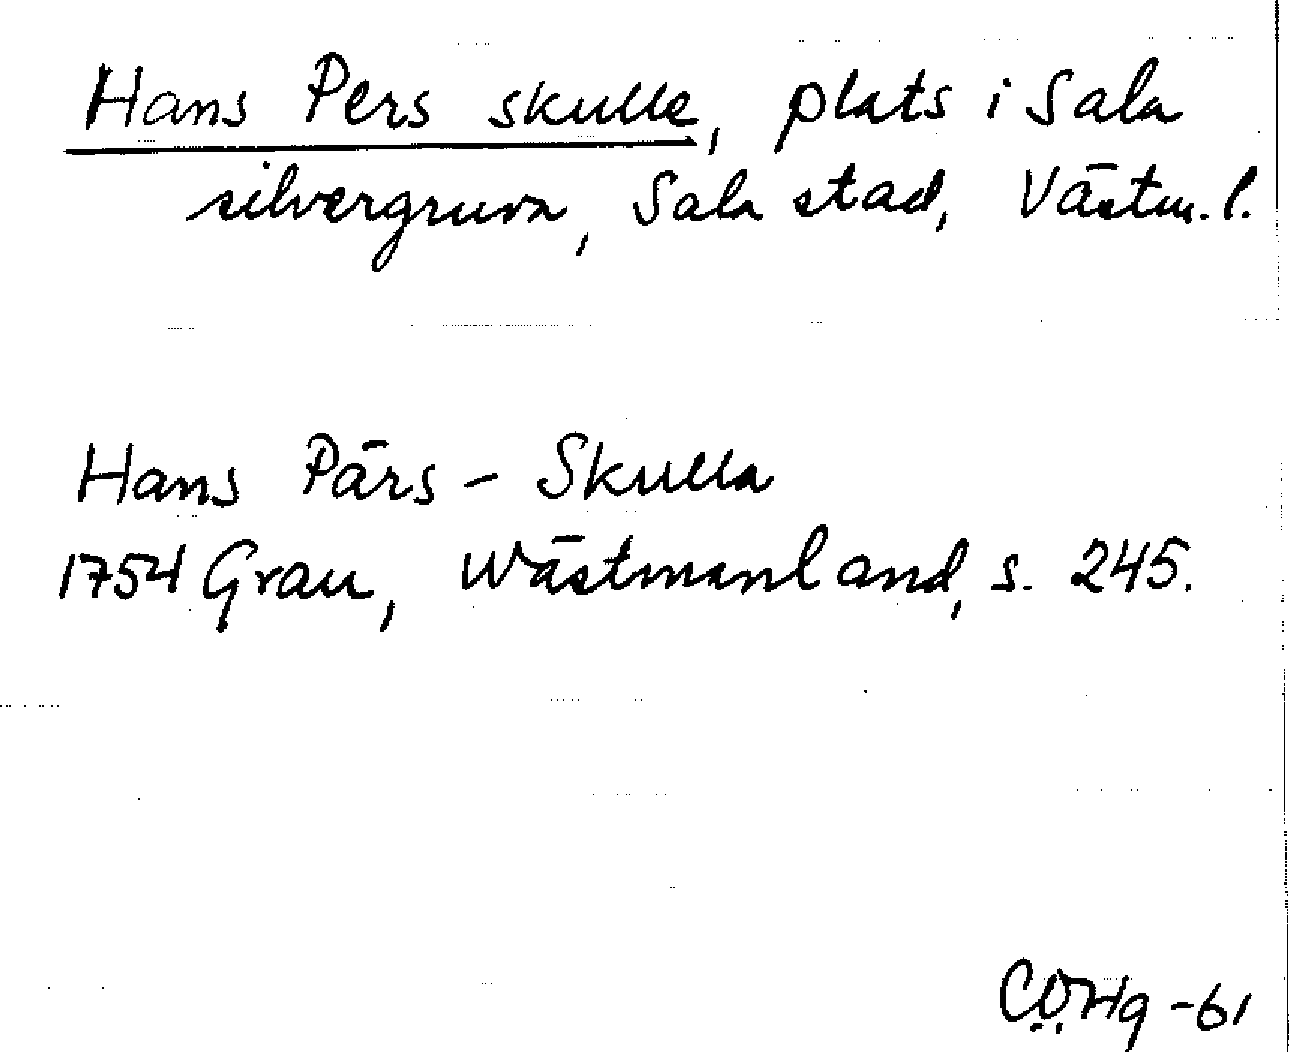 Hans Pers skulle, plats i Sala
silvergruva, Sala stad, Västm. l.
Hans Pärs - Skulla
1754 Grau, Wästmanland, s. 245.
CÖHg -61